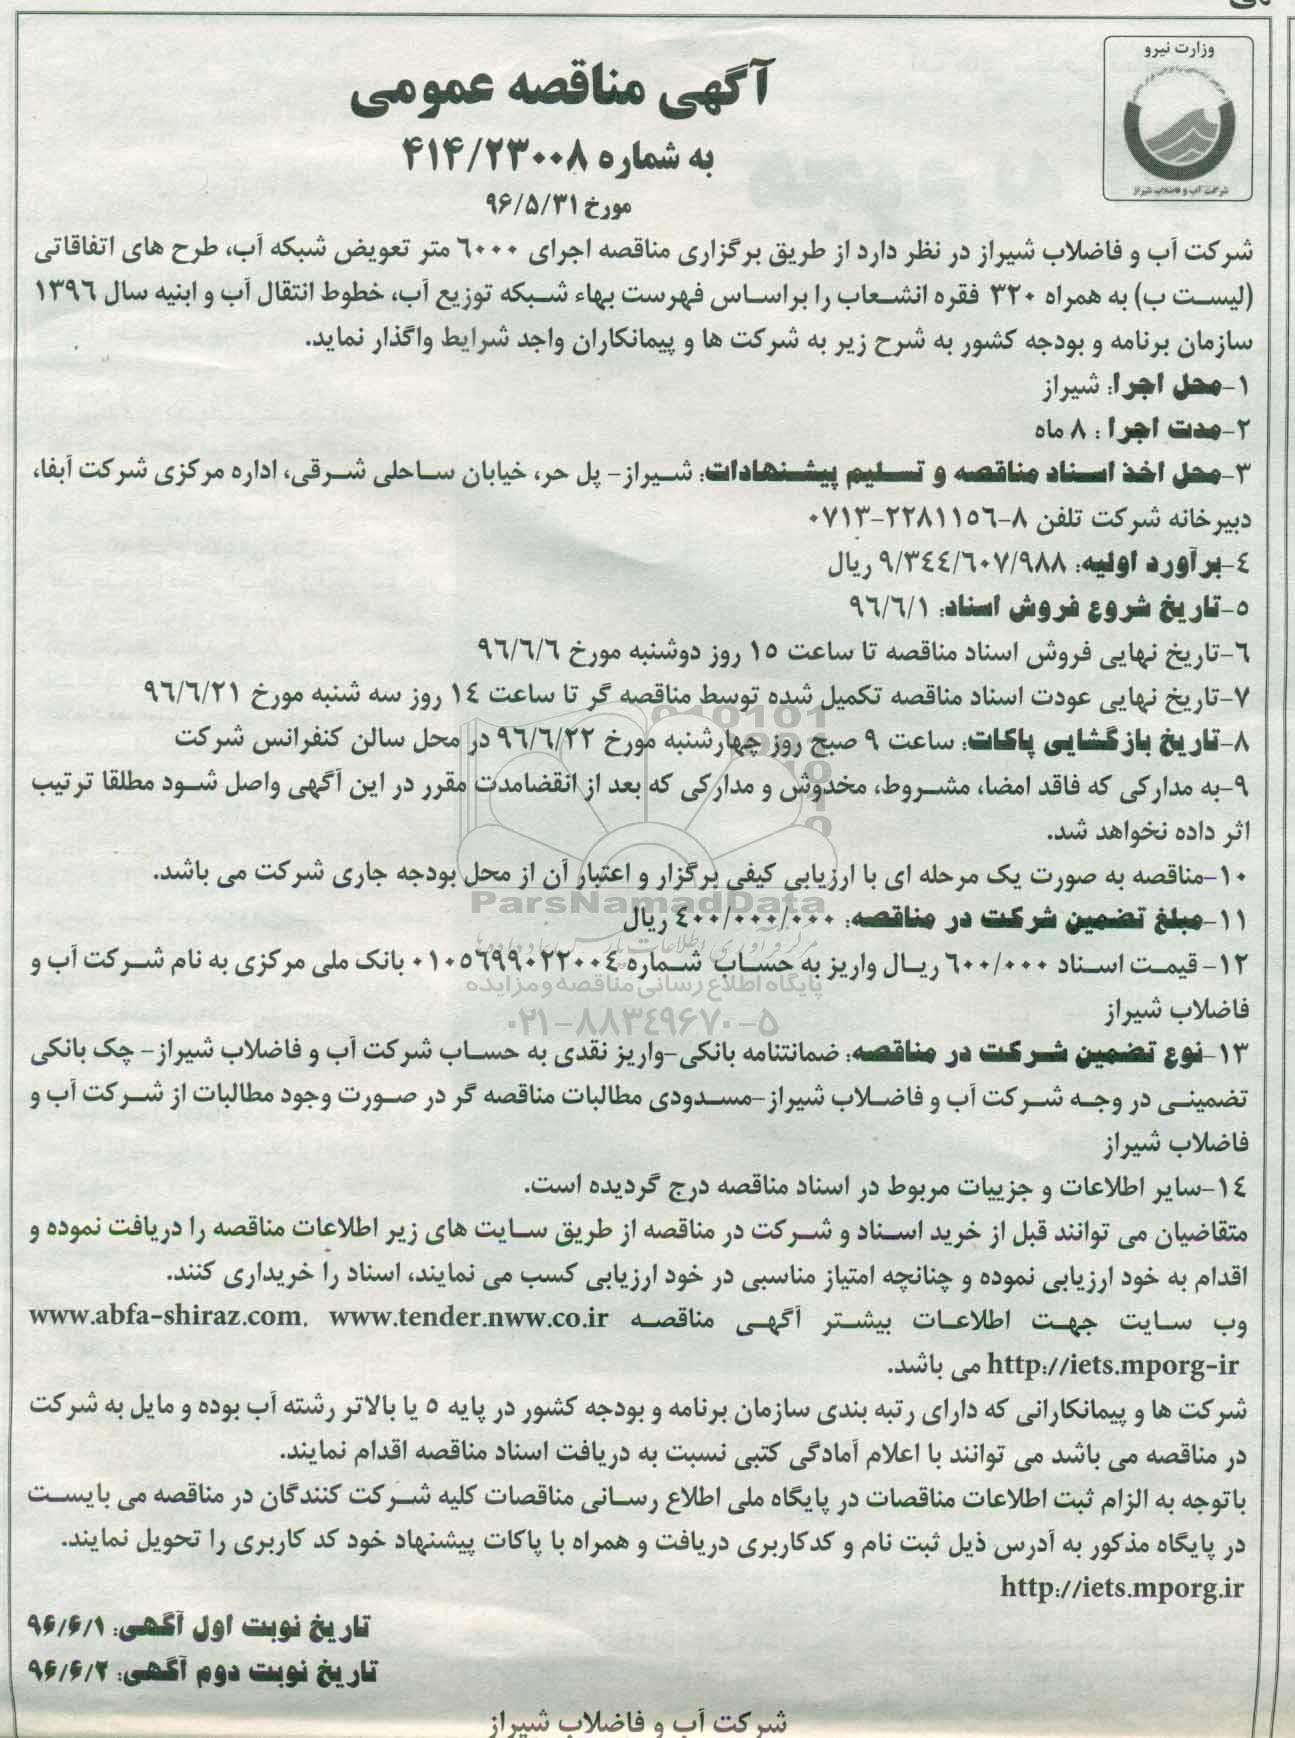 وزارت نیرو
شرکت آب و فاضلاب شیراز
آگهی مناقصه عمومی
به شماره ۴۱۴/۲۳۰۰۸
مورخ ۹۶/۵/۳۱
شرکت آب و فاضلاب شیراز در نظر دارد از طریق برگزاری مناقصه اجرای ۶۰۰۰ متر تعویض شبکه آب، طرح های اتفاقاتی
(لیست ب) به همراه ۳۲۰ فقره انشعاب را براساس فهرست بهاء شبکه توزیع آب، خطوط انتقال آب و ابنیه سال ۱۳۹۶
سازمان برنامه و بودجه کشور به شرح زیر به شرکت ها و پیمانکاران واجد شرایط واگذار نماید.
۱-محل اجرا: شیراز
۲-مدت اجرا : ۸ ماه
۳-محل اخذ اسناد مناقصه و تسلیم پیشنهادات: شیراز- پل حر، خیابان ساحلی شرقی، اداره مرکزی شرکت آبفا،
دبیرخانه شرکت تلفن ۸-۲۲۸۱۱۵۶-۰۷۱۳
۴-برآورد اولیه: ۹/۳۴۴/۶۰۷/۹۸۸ ریال
۵-تاریخ شروع فروش اسناد: ۹۶/۶/۱
۶-تاریخ نهایی فروش اسناد مناقصه تا ساعت ۱۵ روز دوشنبه مورخ ۹۶/۶/۶
۷-تاریخ نهایی عودت اسناد مناقصه تکمیل شده توسط مناقصه گر تا ساعت ۱۴ روز سه شنبه مورخ ۹۶/۶/۲۱
۸-تاریخ بازگشایی پاکات: ساعت ۹ صبح روز چهارشنبه مورخ ۹۶/۶/۲۲ در محل سالن کنفرانس شرکت
۹-به مدارکی که فاقد امضا، مشروط، مخدوش و مدارکی که بعد از انقضامدت مقرر در این آگهی واصل شود مطلقا ترتیب
اثر داده نخواهد شد.
۱۰-مناقصه به صورت یک مرحله ای با ارزیابی کیفی برگزار و اعتبار آن از محل بودجه جاری شرکت می باشد.
ParsNamadData
۱۱-مبلغ تضمین شرکت در مناقصه: ۴۰۰/۰۰۰/۰۰۰ ریال
۱۲- قیمت اسناد ۶۰۰/۰۰۰ ریال واریز به حساب شماره ۰۱۰۵۶۹۹۰۲۲۰۰۴ بانک ملی مرکزی به نام شرکت آب و
پایگاه اطلاع رسانی مناقصه و مزایده
فاضلاب شیراز
۰۲۱-۸۸۳۴۹۶۷۰-۵
۱۳-نوع تضمین شرکت در مناقصه: ضمانتنامه بانکی-واریز نقدی به حساب شرکت آب و فاضلاب شیراز- چک بانکی
تضمینی در وجه شرکت آب و فاضلاب شیراز-مسدودی مطالبات مناقصه گر در صورت وجود مطالبات از شرکت آب و
فاضلاب شیراز
۱۴-سایر اطلاعات و جزییات مربوط در اسناد مناقصه درج گردیده است.
متقاضیان می توانند قبل از خرید اسناد و شرکت در مناقصه از طریق سایت های زیر اطلاعات مناقصه را دریافت نموده و
اقدام به خود ارزیابی نموده و چنانچه امتیاز مناسبی در خود ارزیابی کسب می نمایند، اسناد را خریداری کنند.
وب سایت جهت اطلاعات بیشتر آگهی مناقصه www.abfa-shiraz.com, www.tender.nww.co.ir
http://iets.mporg-ir می باشد.
شرکت ها و پیمانکارانی که دارای رتبه بندی سازمان برنامه و بودجه کشور در پایه ۵ یا بالاتر رشته آب بوده و مایل به شرکت
در مناقصه می باشد می توانند با اعلام آمادگی کتبی نسبت به دریافت اسناد مناقصه اقدام نمایند.
باتوجه به الزام ثبت اطلاعات مناقصات در پایگاه ملی اطلاع رسانی مناقصات کلیه شرکت کنندگان در مناقصه می بایست
در پایگاه مذکور به آدرس ذیل ثبت نام و کدکاربری دریافت و همراه با پاکات پیشنهاد خود کد کاربری را تحویل نمایند.
http://iets.mporg.ir
تاریخ نوبت اول آگهی: ۹۶/۶/۱
تاریخ نوبت دوم آگهی: ۹۶/۶/۲
شرکت آب و فاضلاب شیراز